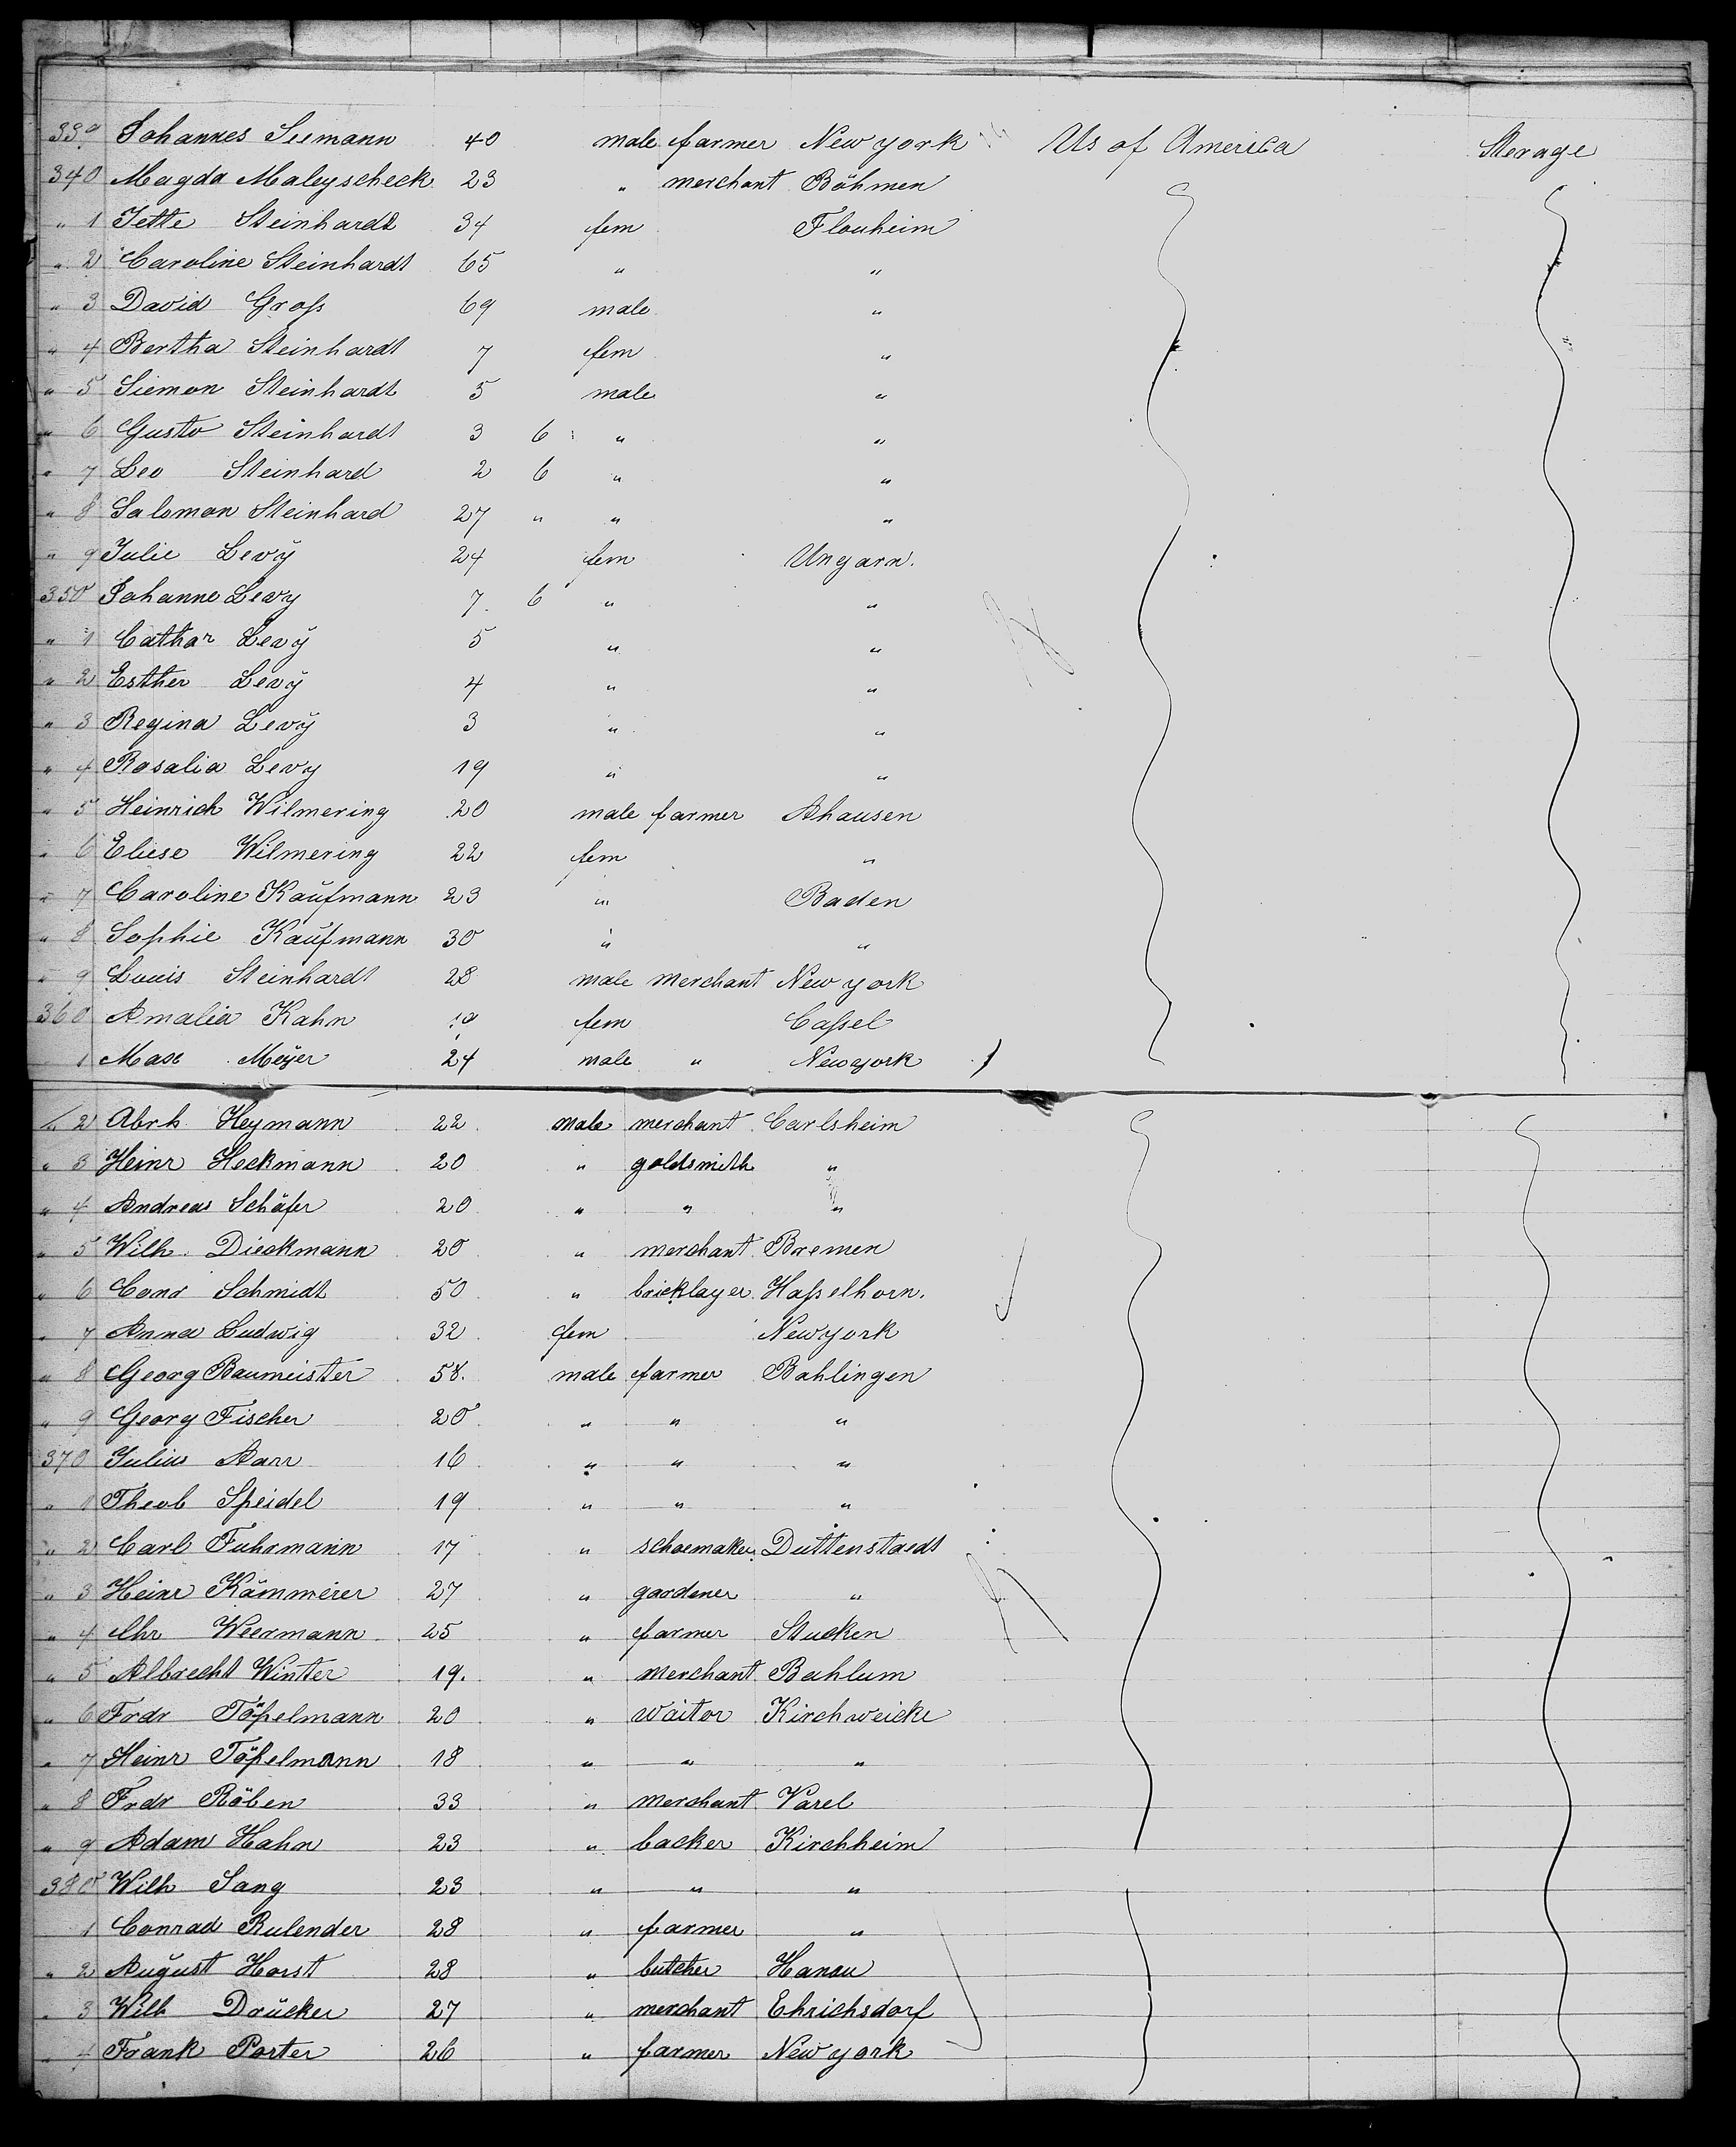 339 Johannes Seemann 40 male farmer New york Us of America Sterage
340 Magda Maleyscheck 23 " merchant Böhmen
" 1 Jette Steinhardt 34 fem Flonheim
" 2 Caroline Steinhardt 65 " "
" 3 David Groſs 69 male "
" 4 Bertha Steinhardt 7 fem "
" 5 Siemon Steinhardt 5 male "
" 6 Gusto Steinhardt 3 6 " "
" 7 Leo Steinhard 2 6 " "
" 8 Salomon Steinhard 27 " " "
" 9 Julie Levy 24 fem Ungarn.
350 Johanne Levy 7 6 " "
" 1 Cathar Levy 5 " "
" 2 Esther Levy 4 " "
" 3 Regina Levy 3 " "
" 4 Rosalia Levy 19 " "
" 5 Heinrich Wilmering 20 male farmer Ahausen
" 6 Eliese Wilmering 22 fem "
" 7 Caroline Kaufmann 23 " Baden
" 8 Sophie Kaufmann 30 " "
" 9 Louis Steinhardt 28 male merchant New york
360 Amalia Kahn 19 fem Caſsel
1 Max Meyer 24 male " Newyork
" 2 Abrh. Heymann 22 male merchant Carlsheim
" 3 Heinr Heckmann 20 " goldsmith "
" 4 Andreas Schäfer 20 " " "
" 5 Wilh. Dieckmann 20 " merchant Bremen
" 6 Conr Schmidt 50 " bricklayer Haſselhorn.
" 7 Anna Ludwig 32 fem Newyork
" 8 Georg Baumeister 58. male farmer Bahlingen
" 9 Georg Fischer 20 " " "
370 Julius Aarr 16 " " "
" 1 Theob Speidel 19 " " "
" 2 Carl Fuhrmann 17 " schoemaker Duttenstaedt
" 3 Heinr Kämmerer 27 " gardener "
" 4 Chr Weermann 25 " farmer Stucken
" 5 Albrecht Winter 19. " merchant Bahlum
" 6 Frdr Töpelmann 20 " waitor Kirchweicke
" 7 Heinr Töpelmann 18 " " "
" 8 Frdr Röben 33 " merchant Varel
" 9 Adam Hahn 23 " backer Kirchheim
380 Wilh Sang 23 " " "
1 Conrad Rulender 28 " farmer "
" 2 August Horst 28 " butcher Hanau
" 3 Wilh Drücker 27 " merchant Ehrichsdorf
" 4 Frank Porter 26 " farmer New york